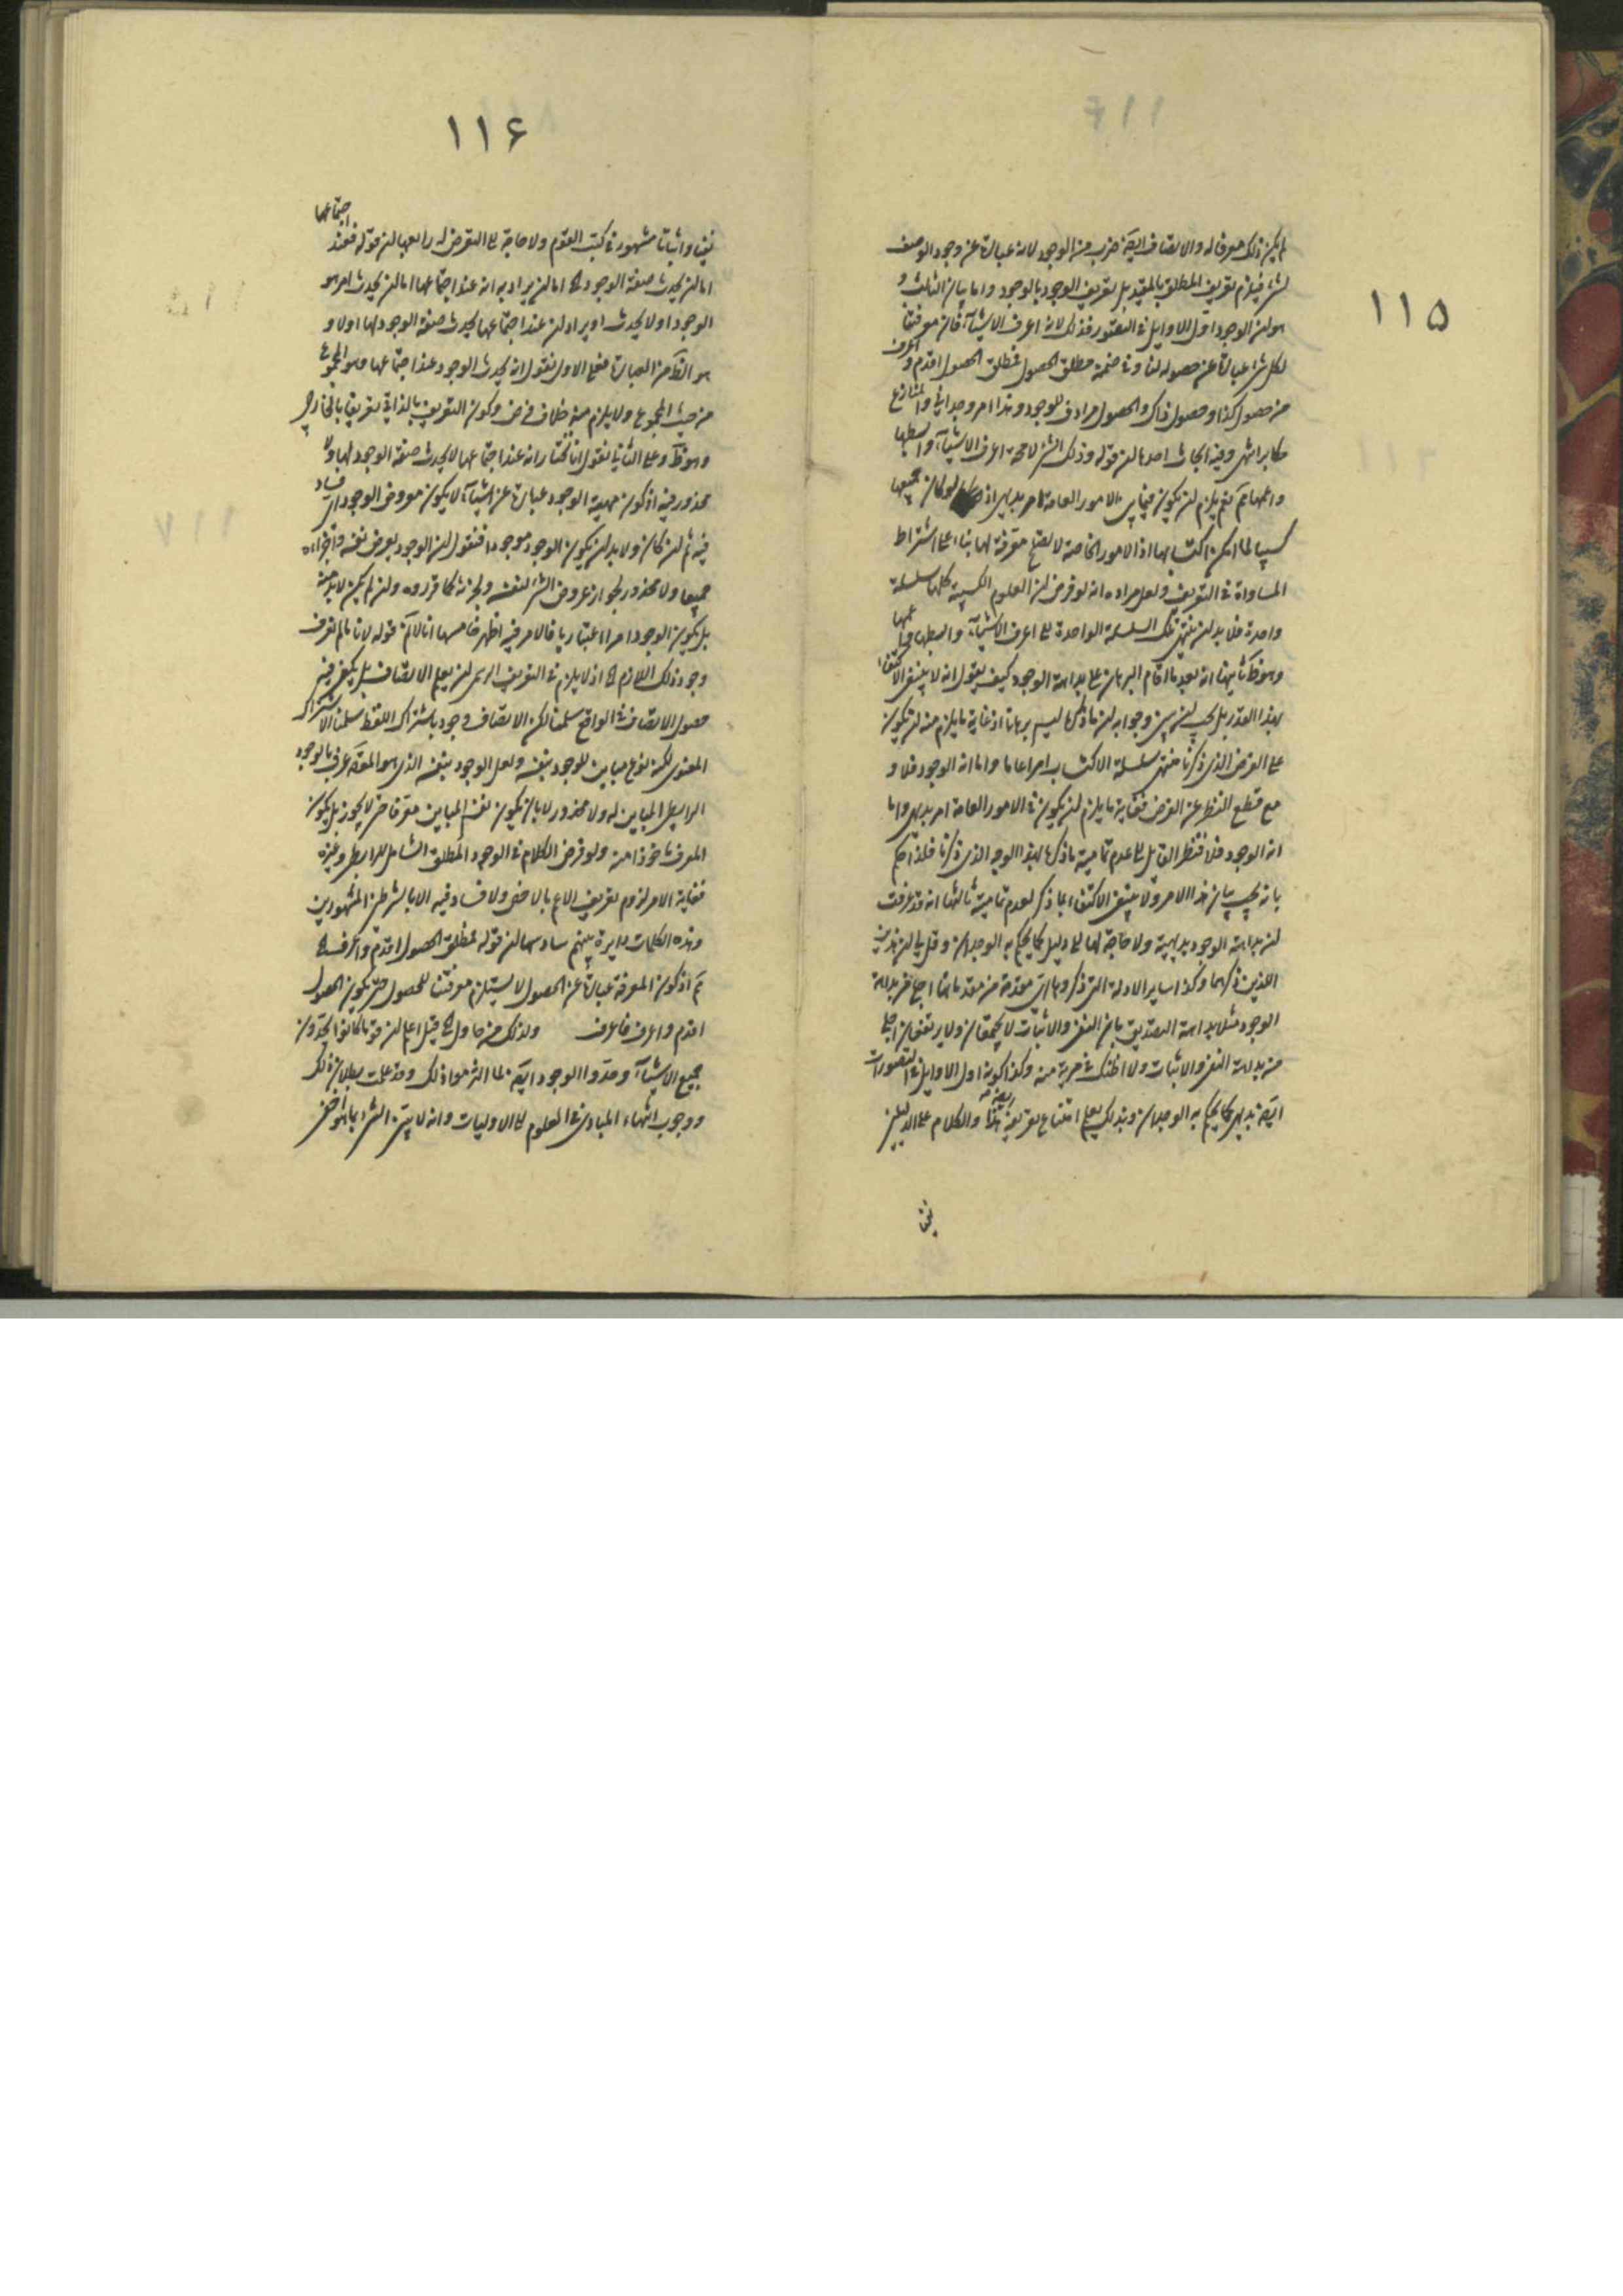 ١١٥
لم يكن ذلك معرفا له والاتصاف ايضا ضرب من الوجود لانه عبارة عن وجود الوصف
لشئ فيلزم تعريف المطلق بالمقيد بل تعريف الوجود بالوجود واما بيان الثالث و
هو ان الوجود اول الاوايل فى التصور فذلك لانه اعرف الاشياء فان معرفتنا
لكل شئ عبارة عن حصوله لنا وفى ضمنه مطلق الحصول فمطلق الحصول اقدم واعرف
من حصول كذا وحصول ذاك والحصول مرادف للوجود وهذا امر وجدانى والمنازع
مكابر انتهى وفيه ابحاث احدها ان قوله وذلك الشئ لا محة اعرف الاشياء وابسطها
واعمها تم نعم يلزم ان يكون فيما بين الامور العامة امر بديهى اذ لو كان جميعها
كسبيا لما امكن اكتسابها اذ الامور الخاصة لا يصح معرفة لها بناء على اشتراط
المساواة فى التعريف ولعل مراده انه لو فرض ان العلوم الكسبية كلها سلسلة
واحدة فلا بد ان ينتهى تلك السلسلة الواحدة الى اعرف الاشياء وابسطها واعمها
وهو ظ ثانيها انه بعد ما اقام البرهان على بداهة الوجود كيف يقول انه لا ينبغى الاكتفاء
بهذا القدر بل يجب ان يبين وجوابه ان ما ذكرنا ليس برهانا اذ غاية ما يلزم منه ان يكون
على الفرض الذى ذكرنا منتهى سلسلة الاكتساب امرا عاما واما انه الوجود فلا و
مع قطع النظر عن الفرض فغاية ما يلزم ان يكون فى الامور العامة امر بديهى واما
انه الوجود فلا فنظر القايل الى عدم تمامية ما ذكرنا بهذا الوجه الذى ذكرنا فلذا حكم
بانه يجب بيان هذا الامر ولا ينبغى الاكتفاء بما ذكر لعدم تمامية ثالثها انه قد عرفت
ان بداهة الوجود بديهية ولا حاجة لها الى دليل كما يحكم به الوجدان وقل لى ان هذين
اللذين ذكرهما وكذا ساير الادلة التى ذكروها اى مقدمة من مقدماتها اجلى من بداهة
الوجود مثلا بداهة التصديق بان النفى والاثبات لا يجتمعان ولا يرتفعان اجلى
من بداهة النفى والاثبات ولا اظنك فى مرية منه وكذا كونه اول الاوايل فى التصورات
ايضا بديهى كما يحكم به الوجدان وبذلك يعلم امتناع تعريفه ايضا والكلام على الدليلين
نفيا
١١۶
نفيا واثباتا مشهور فى كتب القوم ولا حاجة الى التعرض له رابعها ان قوله فعند اجتماعها
اما ان يحدث صفة الوجود اه اما ان يراد به انه عند اجتماعها اما ان يحدث امر هو
الوجود او لا يحدث او يراد ان عند اجتماعها يحدث صفة الوجود لها او لا و
هو الظ من العبارة فعلى الاول نقول انه يحدث الوجود عند اجتماعها وهو المجموع
من حيث المجموع ولا يلزم منه خلاف فرض وكون التعريف بالذاتى تعريفا بالخارجى
وهو ظ وعلى الثانى نقول انا نختار انه عند اجتماعها لا يحدث صفة الوجود لها ولا
محذور فيه اذ كون مهية الوجود عبارة عن اشياء لا يكون معروض الوجود اى فساد
فيه ثم ان كان ولا بد ان يكون الوجود موجودا فنقول ان الوجود يعرض نفسه واجزاءه
جميعا ولا محذور لجواز عروض الشئ لنفسه ولجزئه كما قرروه ولئن لم يكن لا بد منه
بل يكون الوجود امرا اعتباريا فالامر فيه اظهر خامسها انا لا نم قوله لانا ما لم نعرف
وجود ذلك اللازم اه اذ لا يلزم فى التعريف الرسمى ان يعلم الاتصاف بل يكفى فيه
حصول الاتصاف فى الواقع سلمنا لكن الاتصاف وجود باشتراك اللفظ سلمنا الاشتراك
المعنوى لكنه نوع مباين للوجود بنفسه ولعل الوجود بنفسه الذى هو المقصود عرف بالوجود
الرابطى المباين له ولا محذور لا بان يكون نفس المباين معرفا حتى لا يجوز بل يكون
المعرف ماخوذا منه ولو فرض الكلام فى الوجود المطلق الشامل للرابطى وغيره
فغاية الامر لزوم تعريف الاعم بالاخص ولا فساد فيه الا بالشرطين المشهورين
وهذه الكلمات دايرة بينهم سادسها ان قوله فمطلق الحصول اقدم واعرف اه
تم اذ كون المعرفة عبارة عن الحصول لا يستلزم معرفتنا للحصول حتى يكون الحصول
اقدم واعرف فاعرف ولذلك من حاول اه قيل اعلم ان قوما كانوا يحدون
جميع الاشياء وحدوا الوجود ايضا لما التزموا ذلك وقد علمت بطلان ذلك
ووجوب انتهاء المبادى فى العلوم الى الاوليات وانه لا يبين الشئ بما هو اخفى